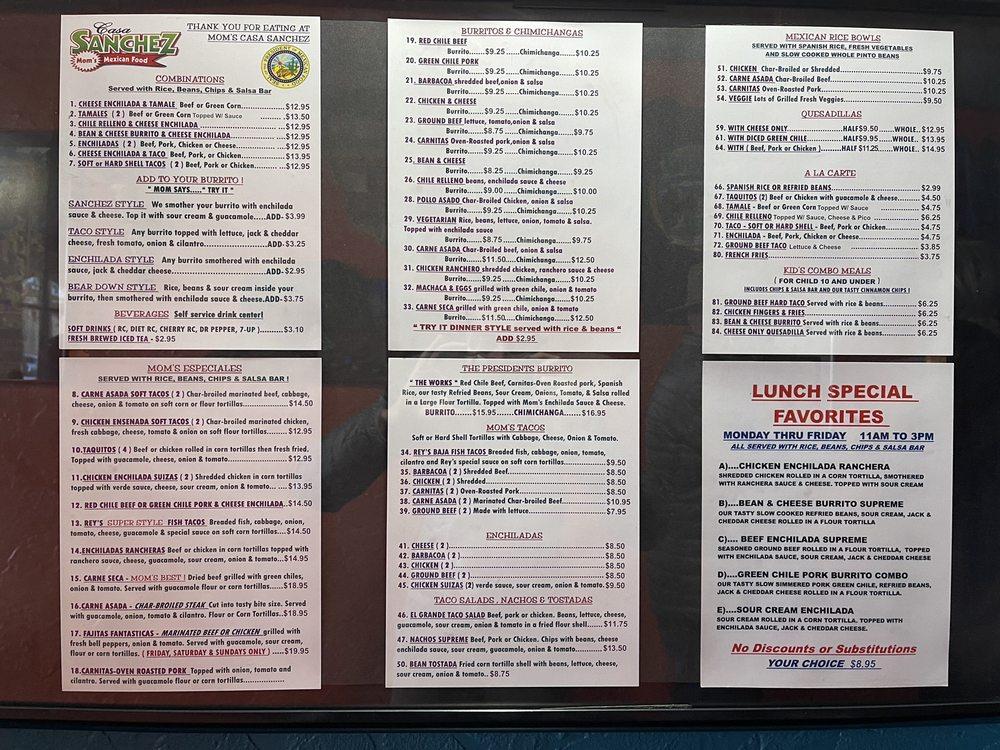 Casa
SANCHEZ
Mom's Mexican Food
THANK YOU FOR EATING AT
MOM'S CASA SANCHEZ
COMBINATIONS
Served with Rice, Beans, Chips & Salsa Bar
1. CHEESE ENCHILADA & TAMALE Beef or Green Corn..............$12.95
2. TAMALES ( 2 ) Beef or Green Corn Topped W/ Sauce .$13.50
3. CHILE RELLENO & CHEESE ENCHILADA ...$12.95
4. BEAN & CHEESE BURRITO & CHEESE ENCHILADA...................$12.95
5. ENCHILADAS ( 2 ) Beef, Pork, Chicken or Cheese...............$12.95
6. CHEESE ENCHILADA & TACO Beef, Pork, or Chicken...............$13.95
7. SOFT or HARD SHELL TACOS ( 2 ) Beef, Pork, or Chicken..........$12.95
ADD TO YOUR BURRITO !
" MOM SAYS....." TRY IT "
SANCHEZ STYLE We smother your burrito with enchilada
sauce & cheese. Top it with sour cream & guacamole....ADD-$3.99
TACO STYLE Any burrito topped with lettuce, jack & cheddar
cheese, fresh tomato, onion & cilantro...................ADD-$3.25
ENCHILADA STYLE Any burrito smothered with enchilada
sauce, jack & cheddar cheese............................ADD-$2.95
BEAR DOWN STYLE Rice, beans & sour cream inside your
burrito, then smothered with enchilada sauce & cheese.ADD-$3.75
BEVERAGES Self service drink center!
SOFT DRINKS ( RC, DIET RC, CHERRY RC, DR PEPPER, 7-UP )..........$3.10
FRESH BREWED ICE TEA - $2.95
MOM'S ESPECIALES
SERVED WITH RICE, BEANS, CHIPS & SALSA BAR !
8. CARNE ASADA SOFT TACOS ( 2 ) Char-broiled marinated beef, cabbage,
cheese, onion & tomato on soft corn or flour tortillas.............$14.50
9. CHICKEN ENSENADA SOFT TACOS ( 2 ) Char-broiled marinated chicken,
fresh cabbage, cheese, tomato & onion on soft flour tortillas........$12.95
10.TAQUITOS ( 4 ) Beef or chicken rolled in corn tortillas then fresh fried,
Topped with guacamole, cheese, onion & tomato...................$12.95
11.CHICKEN ENCHILADA SUIZAS ( 2 ) Shredded chicken in corn tortillas
topped with verde sauce, cheese, sour cream, onion & tomato... ....$13.95
12. RED CHILE BEEF OR GREEN CHILE PORK & CHEESE ENCHILADA..$14.50
13. REY'S SUPER STYLE FISH TACOS Breaded fish, cabbage, onion,
tomato, cheese, guacamole & special sauce on soft corn tortillas....$14.50
14.ENCHILADAS RANCHERAS Beef or chicken in corn tortillas topped with
ranchero sauce, cheese, guacamole, sour cream, onion & tomato....$14.95
15. CARNE SECA - MOM'S BEST ! Dried beef grilled with green chiles,
onion & tomato. Served with guacamole flour or corn tortillas......$18.95
16.CARNE ASADA - CHAR-BROILED STEAK Cut into tasty bite size. Served
with guacamole, onion, tomato & cilantro. Flour or Corn Tortillas..$18.95
17. FAJITAS FANTASTICAS - MARINATED BEEF OR CHICKEN grilled with
fresh bell peppers, onion & tomato. Served with guacamole, sour cream,
flour or corn tortillas. ( FRIDAY, SATURDAY & SUNDAYS ONLY ) .....$19.95
18.CARNITAS-OVEN ROASTED PORK Topped with onion, tomato and
cilantro. Served with guacamole flour or corn tortillas................
BURRITOS & CHIMICHANGAS
19. RED CHILE BEEF
Burrito.......$9.25 .....Chimichanga.......$10.25
20. GREEN CHILE PORK
Burrito.......$9.25.....Chimichanga.......$10.25
21. BARBACOA shredded beef,onion & salsa
Burrito.......$9.25.....Chimichanga.......$10.25
22. CHICKEN & CHEESE
Burrito.......$9.25.....Chimichanga.......$10.25
23. GROUND BEEF lettuce, tomato,onion & salsa
Burrito.......$8.75.....Chimichanga.......$9.75
24. CARNITAS Oven-Roasted pork,onion & salsa
Burrito.......$9.25.....Chimichanga.......$10.25
25. BEAN & CHEESE
Burrito.......$8.25.....Chimichanga.......$9.25
26. CHILE RELLENO beans, enchilada sauce & cheese
Burrito.......$9.00 .....Chimichanga.......$10.00
28. POLLO ASADO Char-Broiled Chicken, onion & salsa
Burrito.......$9.25.....Chimichanga.......$10.25
29. VEGETARIAN Rice, beans, lettuce, onion, tomato & salsa.
Topped with enchilada sauce
Burrito.......$8.75.....Chimichanga.......$9.75
30. CARNE ASADA Char-Broiled beef, onion & salsa
Burrito.......$11.50.....Chimichanga.......$12.50
31. CHICKEN RANCHERO shredded chicken, ranchero sauce & cheese
Burrito.......$9.25.....Chimichanga.......$10.25
32. MACHACA & EGGS grilled with green chile, onion & tomato
Burrito.......$9.25.....Chimichanga.......$10.25
33. CARNE SECA grilled with green chile, onion & tomato
Burrito.......$11.50.....Chimichanga.......$12.50
" TRY IT DINNER STYLE served with rice & beans "
ADD $2.95
THE PRESIDENTS BURRITO
" THE WORKS " Red Chile Beef, Carnitas-Oven Roasted pork, Spanish
Rice, our tasty Refried Beans, Sour Cream, Onions, Tomato, & Salsa rolled
in a Large Flour Tortilla. Topped with Mom's Enchilada Sauce & Cheese.
BURRITO......$15.95.......CHIMICHANGA......$16.95
MOM'S TACOS
Soft or Hard Shell Tortillas with Cabbage, Cheese, Onion & Tomato.
34. REY'S BAJA FISH TACOS Breaded fish, cabbage, onion, tomato,
cilantro and Rey's special sauce on soft corn tortillas...............$9.50
35. BARBACOA ( 2 ) Shredded Beef...................................$8.50
36. CHICKEN ( 2 ) Shredded.........................................$8.50
37. CARNITAS ( 2 ) Oven-Roasted Pork..............................$8.50
38. CARNE ASADA ( 2 ) Marinated Char-broiled Beef................$10.95
39. GROUND BEEF ( 2 ) Made with lettuce..........................$7.95
ENCHILADAS
41. CHEESE ( 2 )...................................................$8.50
42. BARBACOA ( 2 )................................................$8.50
43. CHICKEN ( 2 )..................................................$8.50
44. GROUND BEEF ( 2 )............................................$8.50
45. CHICKEN SUIZAS (2) verde sauce, sour cream, onion & tomato.$9.50
TACO SALADS , NACHOS & TOSTADAS
46. EL GRANDE TACO SALAD Beef, pork or chicken. Beans, lettuce, cheese,
guacamole, sour cream, onion & tomato in a fried flour shell......$11.75
47. NACHOS SUPREME Beef, Pork or Chicken. Chips with beans, cheese
enchilada sauce, sour cream, guacamole, onion & tomato...........$13.50
50. BEAN TOSTADA Fried corn tortilla shell with beans, lettuce, cheese,
sour cream, onion & tomato.. $8.75
MEXICAN RICE BOWLS
SERVED WITH SPANISH RICE, FRESH VEGETABLES
AND SLOW COOKED WHOLE PINTO BEANS
51. CHICKEN Char-Broiled or Shredded............................$9.75
52. CARNE ASADA Char-Broiled Beef..............................$10.25
53. CARNITAS Oven-Roasted Pork.................................$10.25
54. VEGGIE Lots of Grilled Fresh Veggies..........................$9.50
QUESADILLAS
59. WITH CHEESE ONLY...............HALF$9.50 .....WHOLE..$12.95
61. WITH DICED GREEN CHILE........HALF$9.95....WHOLE.. $13.95
64. WITH ( Beef, Pork or Chicken )........HALF $11.25.....WHOLE.. $14.95
A LA CARTE
66. SPANISH RICE OR REFRIED BEANS............................$2.99
67. TAQUITOS (2) Beef or Chicken with guacamole & cheese..........$4.50
68. TAMALE - Beef or Green Corn Topped W/ Sauce ..............$4.75
69. CHILE RELLENO Topped W/ Sauce, Cheese & Pico ..............$6.25
70. TACO - SOFT OR HARD SHELL - Beef, Pork or Chicken...........$4.75
71. ENCHILADA - Beef, Pork, Chicken or Cheese....................$4.75
72. GROUND BEEF TACO Lettuce & Cheese ......................$3.85
80. FRENCH FRIES...............................................$3.75
KID'S COMBO MEALS
( FOR CHILD 10 AND UNDER )
INCLUDES CHIPS & SALSA BAR AND OUR TASTY CINNAMON CHIPS !
81. GROUND BEEF HARD TACO Served with rice & beans..........$6.25
82. CHICKEN FINGERS & FRIES....................................$6.25
83. BEAN & CHEESE BURRITO Served with rice & beans............$6.25
84. CHEESE ONLY QUESADILLA Served with rice & beans..........$6.25
LUNCH SPECIAL
FAVORITES
MONDAY THRU FRIDAY 11AM TO 3PM
ALL SERVED WITH RICE, BEANS, CHIPS & SALSA BAR
A)....CHICKEN ENCHILADA RANCHERA
SHREDDED CHICKEN ROLLED IN A CORN TORTILLA, SMOTHERED
WITH RANCHERA SAUCE & CHEESE. TOPPED WITH SOUR CREAM
B)....BEAN & CHEESE BURRITO SUPREME
OUR TASTY SLOW COOKED REFRIED BEANS, SOUR CREAM, JACK &
CHEDDAR CHEESE ROLLED IN A FLOUR TORTILLA
C).... BEEF ENCHILADA SUPREME
SEASONED GROUND BEEF ROLLED IN A FLOUR TORTILLA, TOPPED
WITH ENCHILADA SAUCE, SOUR CREAM, JACK & CHEDDAR CHEESE
D)....GREEN CHILE PORK BURRITO COMBO
OUR TASTY SLOW SIMMERED PORK GREEN CHILE, REFRIED BEANS,
JACK & CHEDDAR CHEESE ROLLED IN A FLOUR TORTILLA.
E)....SOUR CREAM ENCHILADA
SOUR CREAM ROLLED IN A CORN TORTILLA. TOPPED WITH
ENCHILADA SAUCE, JACK & CHEDDAR CHEESE.
No Discounts or Substitutions
YOUR CHOICE $8.95